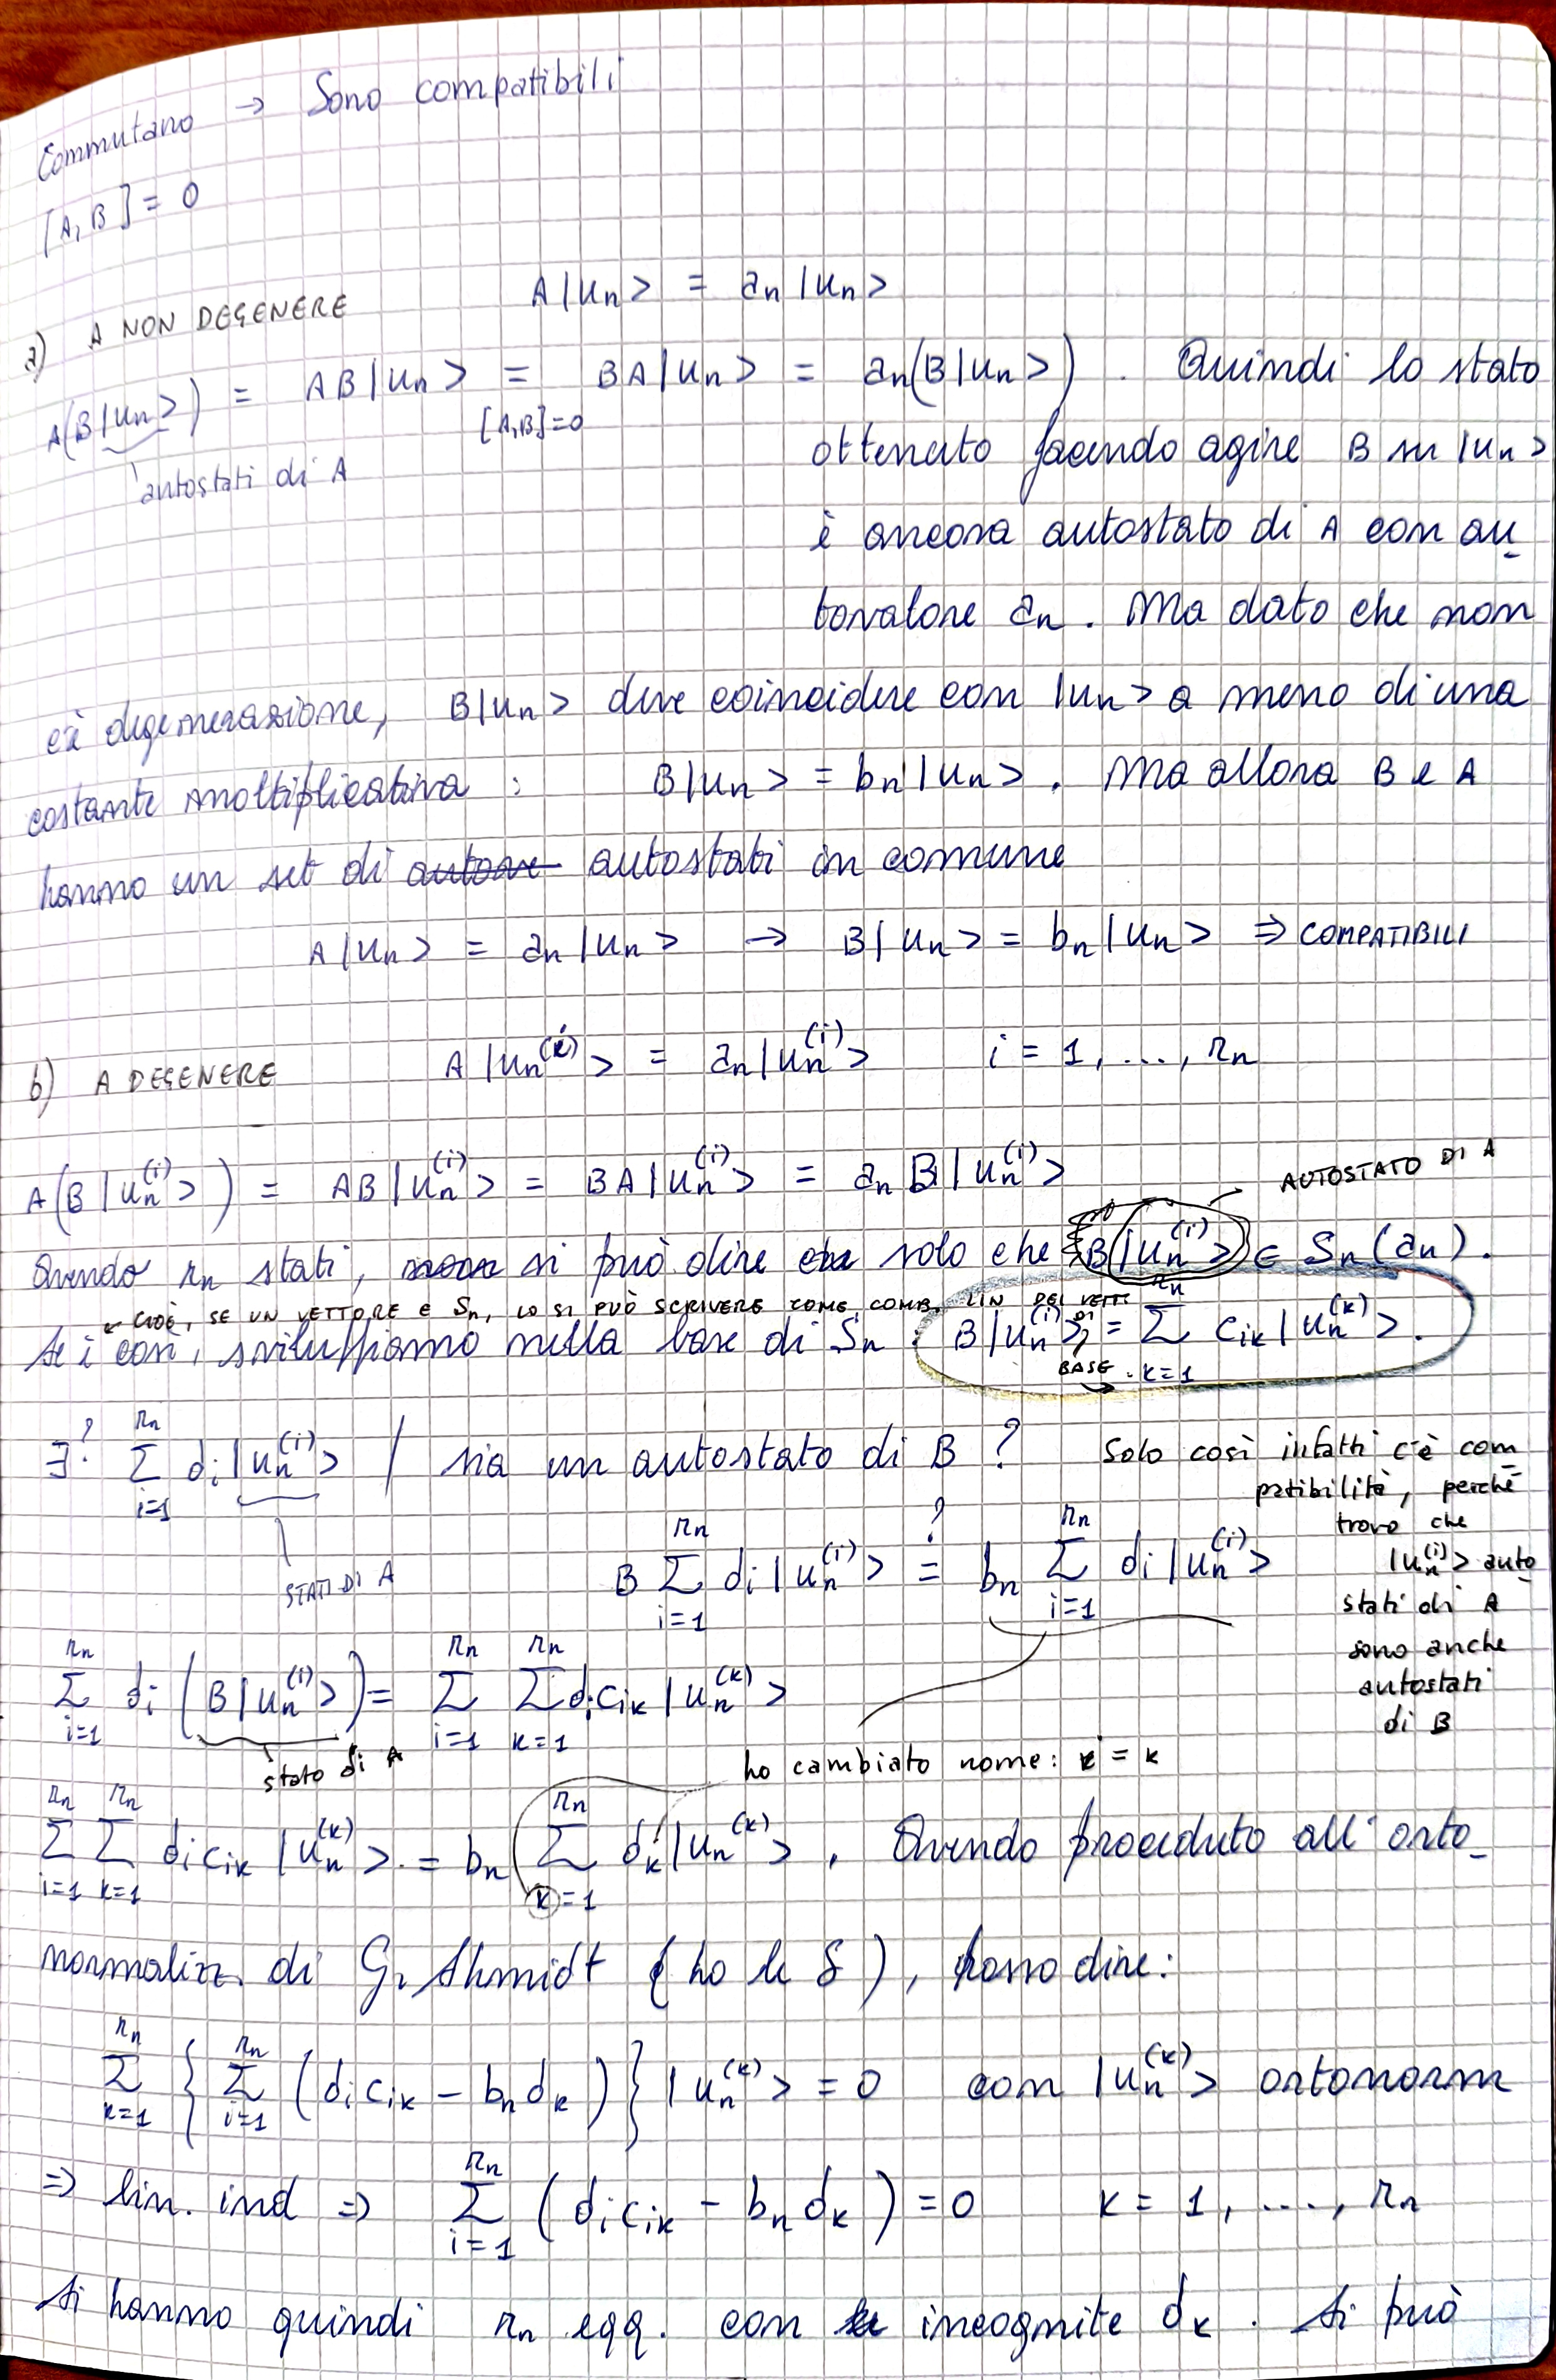 Commutano → Sono compatibili
[A, B] = 0
a) A NON DEGENERE A|un> = an|un>
A(B|un>) = AB|un> = BA|un> = an(B|un>). Quindi lo stato
[A,B]=0
autostati di A
ottenuto facendo agire B su |un>
è ancora autostato di A con au-
tovalore an. Ma dato che non
c'è degenerazione, B|un> deve coincidere con |un> a meno di una
costante moltiplicativa : B|un> = bn|un>. Ma allora B e A
hanno un set di autostati in comune
A|un> = an|un> → B|un> = bn|un> ⇒ COMPATIBILI
b) A DEGENERE A|un^(i)> = an|un^(i)> i = 1, ..., rn
A(B|un^(i)>) = AB|un^(i)> = BA|un^(i)> = an B|un^(i)>
AUTOSTATO DI A
Avendo rn stati, si può dire solo che B|un^(i)> ∈ Sn(an).
CIOÈ, SE UN VETTORE ∈ Sn, LO SI PUÒ SCRIVERE COME COMB. LIN DEI VETT DI BASE.
Se è così, sviluppiamo nella base di Sn : B|un^(i)> = Σ_{k=1}^{rn} cik|un^(k)>.
∃? Σ_{i=1}^{rn} di|un^(i)> / sia un autostato di B ? Solo così infatti c'è com-
patibilità, perché
trovo che
|un^(i)> auto-
stati di A
sono anche
autostati
di B
STATI DI A
B Σ_{i=1}^{rn} di|un^(i)> =? bn Σ_{i=1}^{rn} di|un^(i)>
Σ_{i=1}^{rn} di (B|un^(i)>) = Σ_{i=1}^{rn} Σ_{k=1}^{rn} di cik|un^(k)>
stato di A
ho cambiato nome: i = k
Σ_{i=1}^{rn} Σ_{k=1}^{rn} di cik|un^(k)> = bn (Σ_{k=1}^{rn} dk|un^(k)>. Avendo proceduto all'orto-
normaliz. di G. Shmidt (ho le δ), posso dire:
Σ_{k=1}^{rn} {Σ_{i=1}^{rn} (di cik - bn dk)} |un^(k)> = 0 con |un^(k)> ortonorm
⇒ lin. ind ⇒ Σ_{i=1}^{rn} (di cik - bn dk) = 0 k = 1, ..., rn
Si hanno quindi rn eqq. con incognite dk. Si può